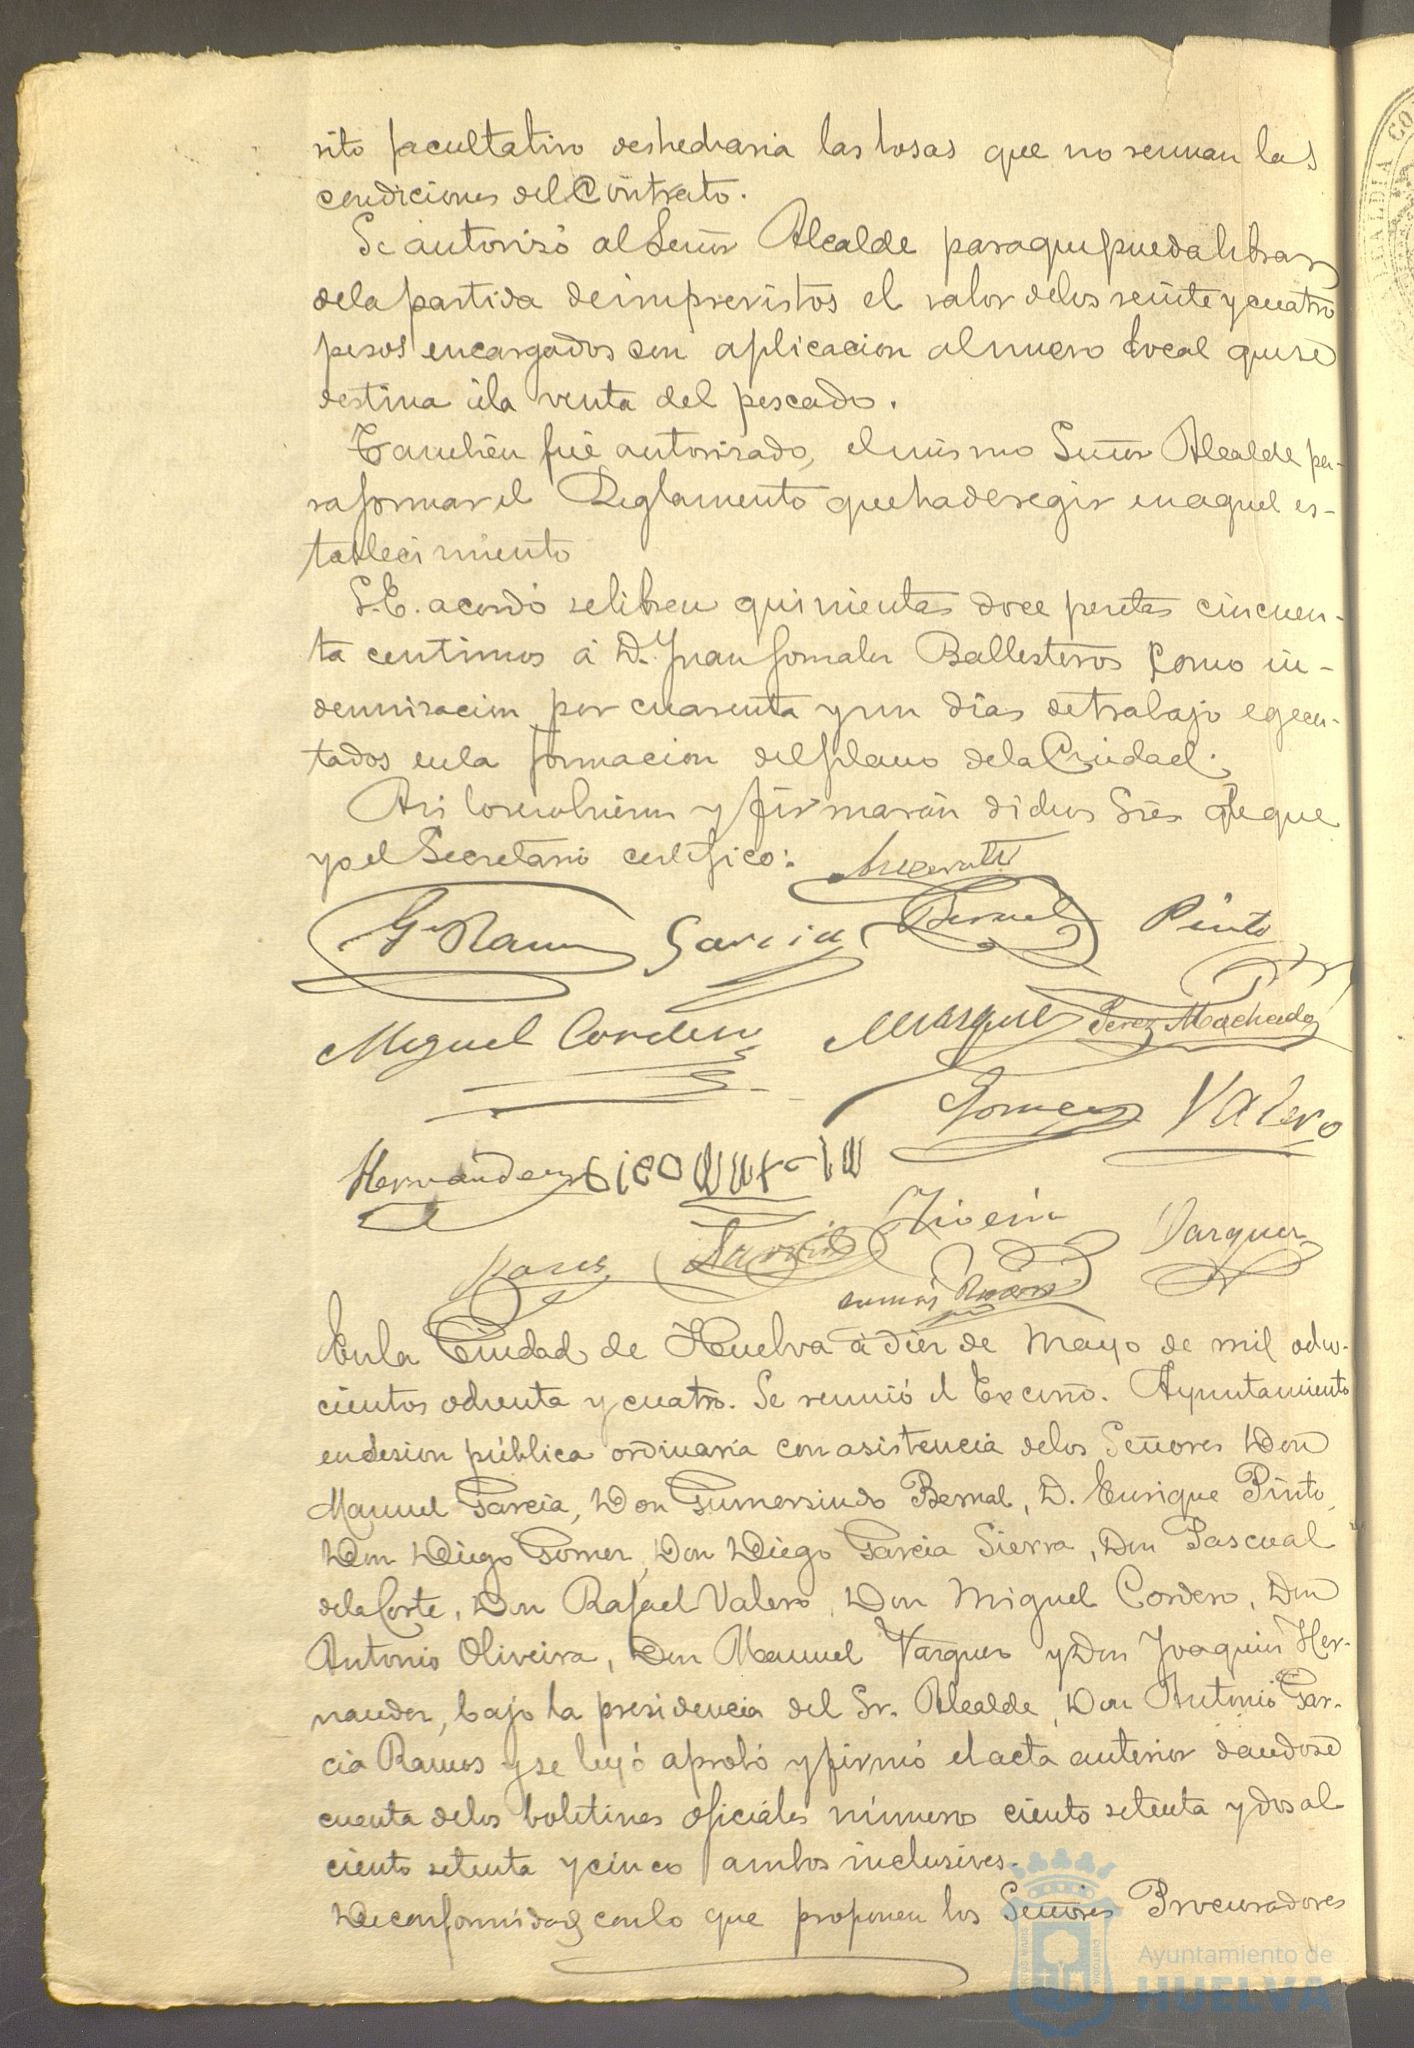 sito facultativo deshecharia las losas que no reunan las
condiciones del Contrato.
Se autorizó al Señor Alcalde para que pueda librar
de la partida de imprevistos el valor de los veinte y cuatro
pesos encargados con aplicacion al nuevo local que se
destina á la venta del pescado.
Tambien fué autorizado, el mismo Señor Alcalde pa-
ra formar el Reglamento que ha de regir en aquel es-
tablecimiento
S.E. acordó se libren quinientas doce pesetas cincuen-
ta centimos á D. Juan Gonzalez Ballesteros como in-
demnizacion por cuarenta y un días de trabajo egecu-
tados en la formacion del plano de la Ciudad.
Asi lo resolvieron y firmarán dichos Sres de que
yo el Secretario certifico:
Gª Ramos Garcia Bernal Pinto
Miguel Cordero Marquez Perez Machado
Gomez Valero
Hernandez
Oliveira Vazquez
En la Ciudad de Huelva á diez de Mayo de mil ocho-
cientos ochenta y cuatro. Se reunió el Excmo. Ayuntamiento
en sesion pública ordinaria con asistencia de los Señores Don
Manuel Garcia, Don Gumersindo Bernal, D. Enrique Pinto,
Don Diego Gomez, Don Diego Garcia Sierra, Don Pascual
de la Corte, Don Rafael Valero, Don Miguel Cordero, Don
Antonio Oliveira, Don Manuel Vazquez y Don Joaquin Her-
nandez, bajo la presidencia del Sr. Alcalde, Don Antonio Gar-
cia Ramos y se leyó aprobó y firmó el acta anterior dandose
cuenta de los boletines oficiales números ciento setenta y dos al
ciento setenta y cinco ambos inclusives.
De conformidad con lo que proponen los Señores Procuradores
Ayuntamiento de
HUELVA